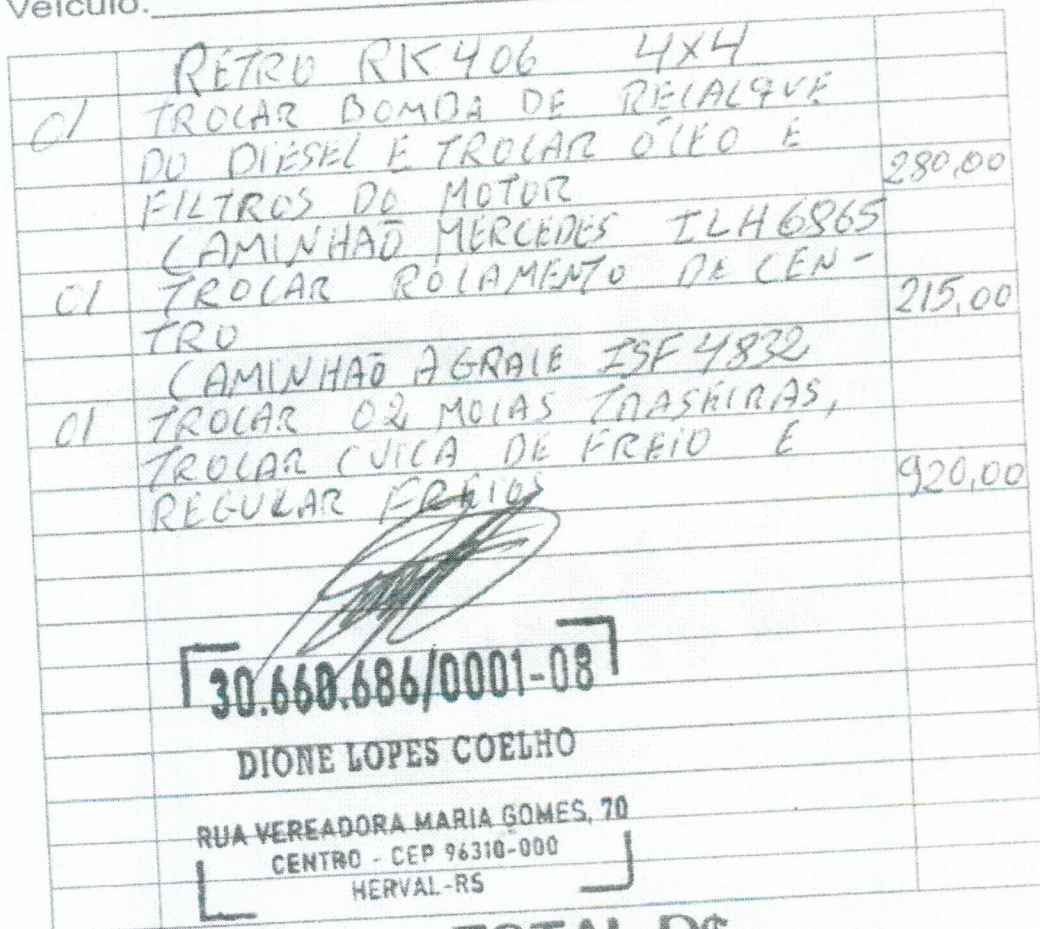 Veículo:
RETRO RK406 4X4
01 TROCAR BOMBA DE RECALQUE
DO DIESEL E TROCAR ÓLEO E
FILTROS DO MOTOR 280,00
CAMINHÃO MERCEDES ILH6865
01 TROCAR ROLAMENTO DE CEN-
TRO 215,00
CAMINHÃO AGRALE ISF4832
01 TROCAR 02 MOLAS TRASEIRAS,
TROCAR CUICA DE FREIO E
REGULAR FREIOS 920,00
30.660.686/0001-08
DIONE LOPES COELHO
RUA VEREADORA MARIA GOMES, 70
CENTRO - CEP 96310-000
HERVAL-RS
TOTAL R$